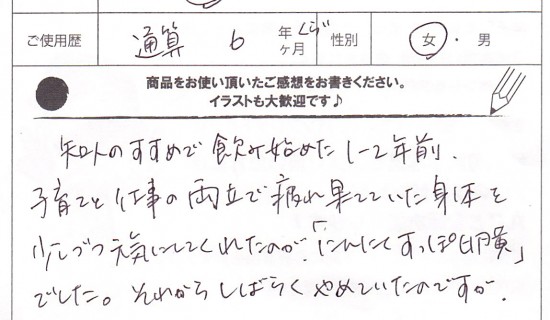 ご使用歴 通算 6 年 ヶ月 くらい 性別 女・男
商品をお使い頂いたご感想をお書きください。
イラストも大歓迎です♪
知人のすすめで飲み始めた1-2年前.
子育てと仕事の両立で疲れ果てていた身体を
少しづつ元気にしてくれたのが、「にんにくすっぽ卵黄」
でした。それからしばらくやめていたのですが、